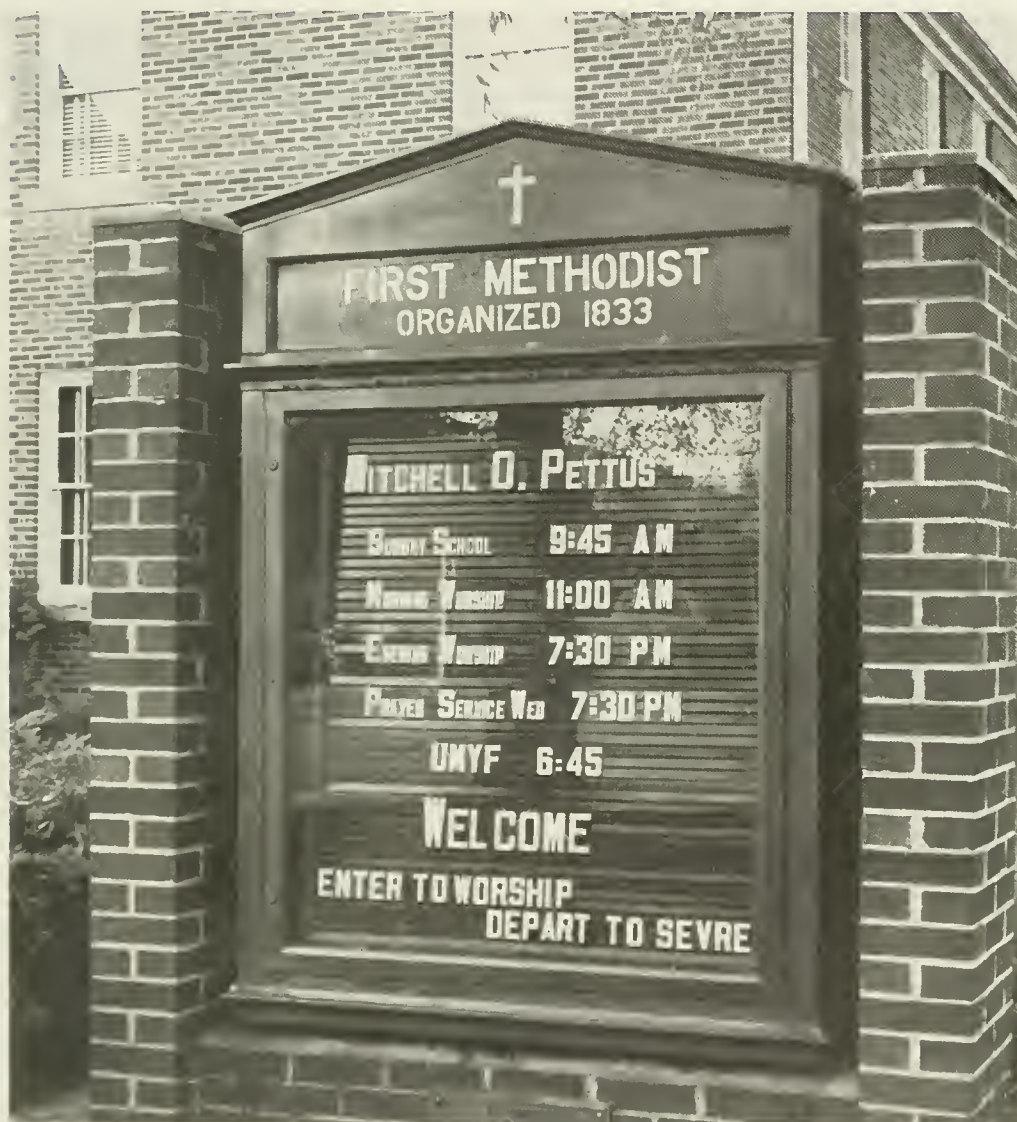 FIRST METHODIST
ORGANIZED 1833
MITCHELL D. PETTUS
SUNDAY SCHOOL 9:45 AM
MORNING WORSHIP 11:00 AM
EVENING WORSHIP 7:30 PM
PRAYER SERVICE WED 7:30 PM
UMYF 6:45
WELCOME
ENTER TO WORSHIP
DEPART TO SEVRE